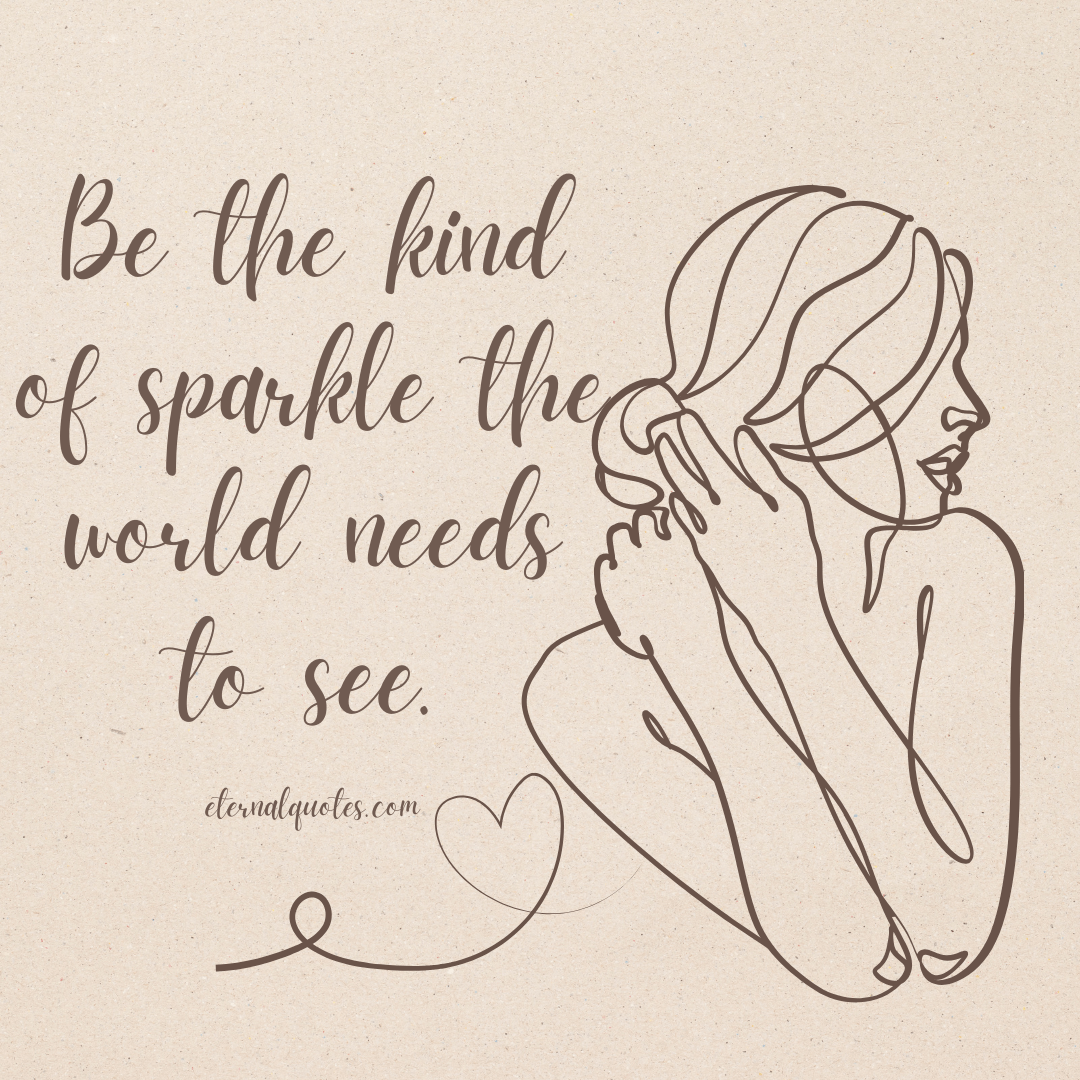 Be the kind
of sparkle the
world needs
to see.
eternalquotes.com